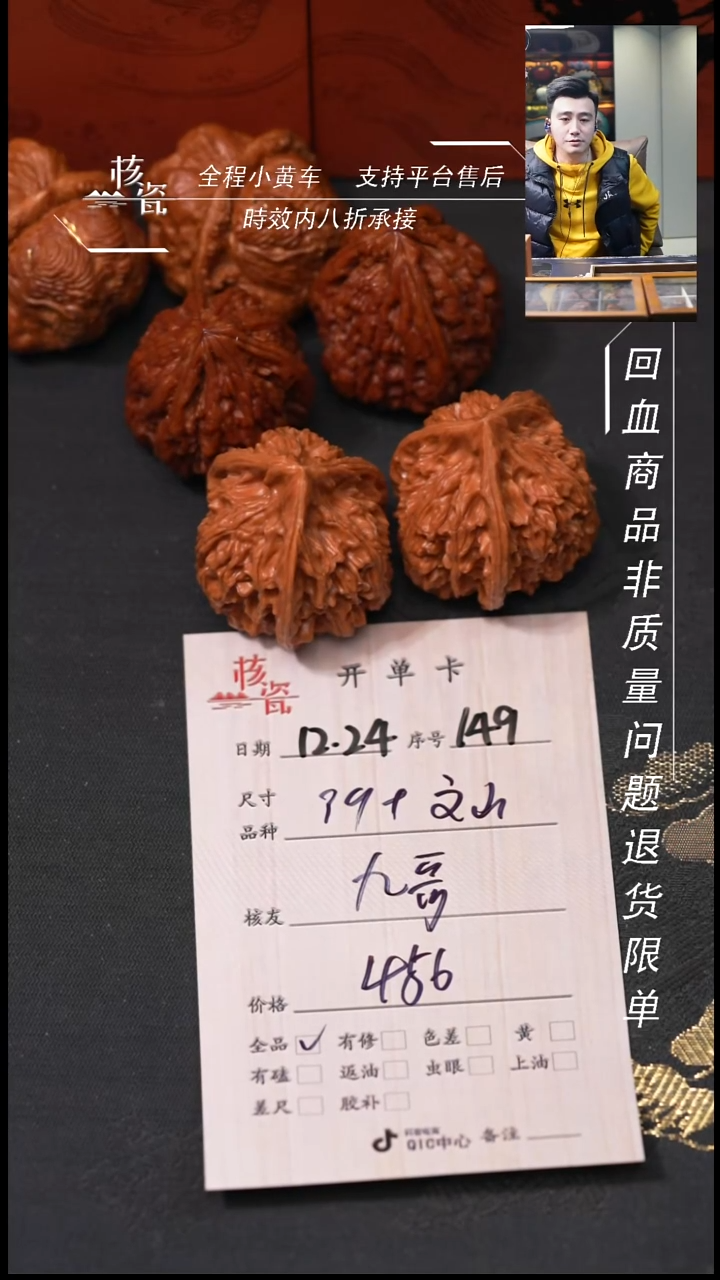 核瓷
全程小黄车 支持平台售后
時效内八折承接
回血商品非质量问题退货限单
核瓷
开单卡
日期 12.24 序号 149
尺寸
品种 39+ 文山
核友 九哥
价格 486
全品 ✓ 有修 色差 黄
有磕 返油 虫眼 上油
差尺 胶补
QIC中心 备注